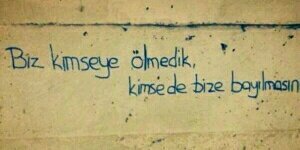 Biz kimseye ölmedik,
kimse de bize bayılmasın